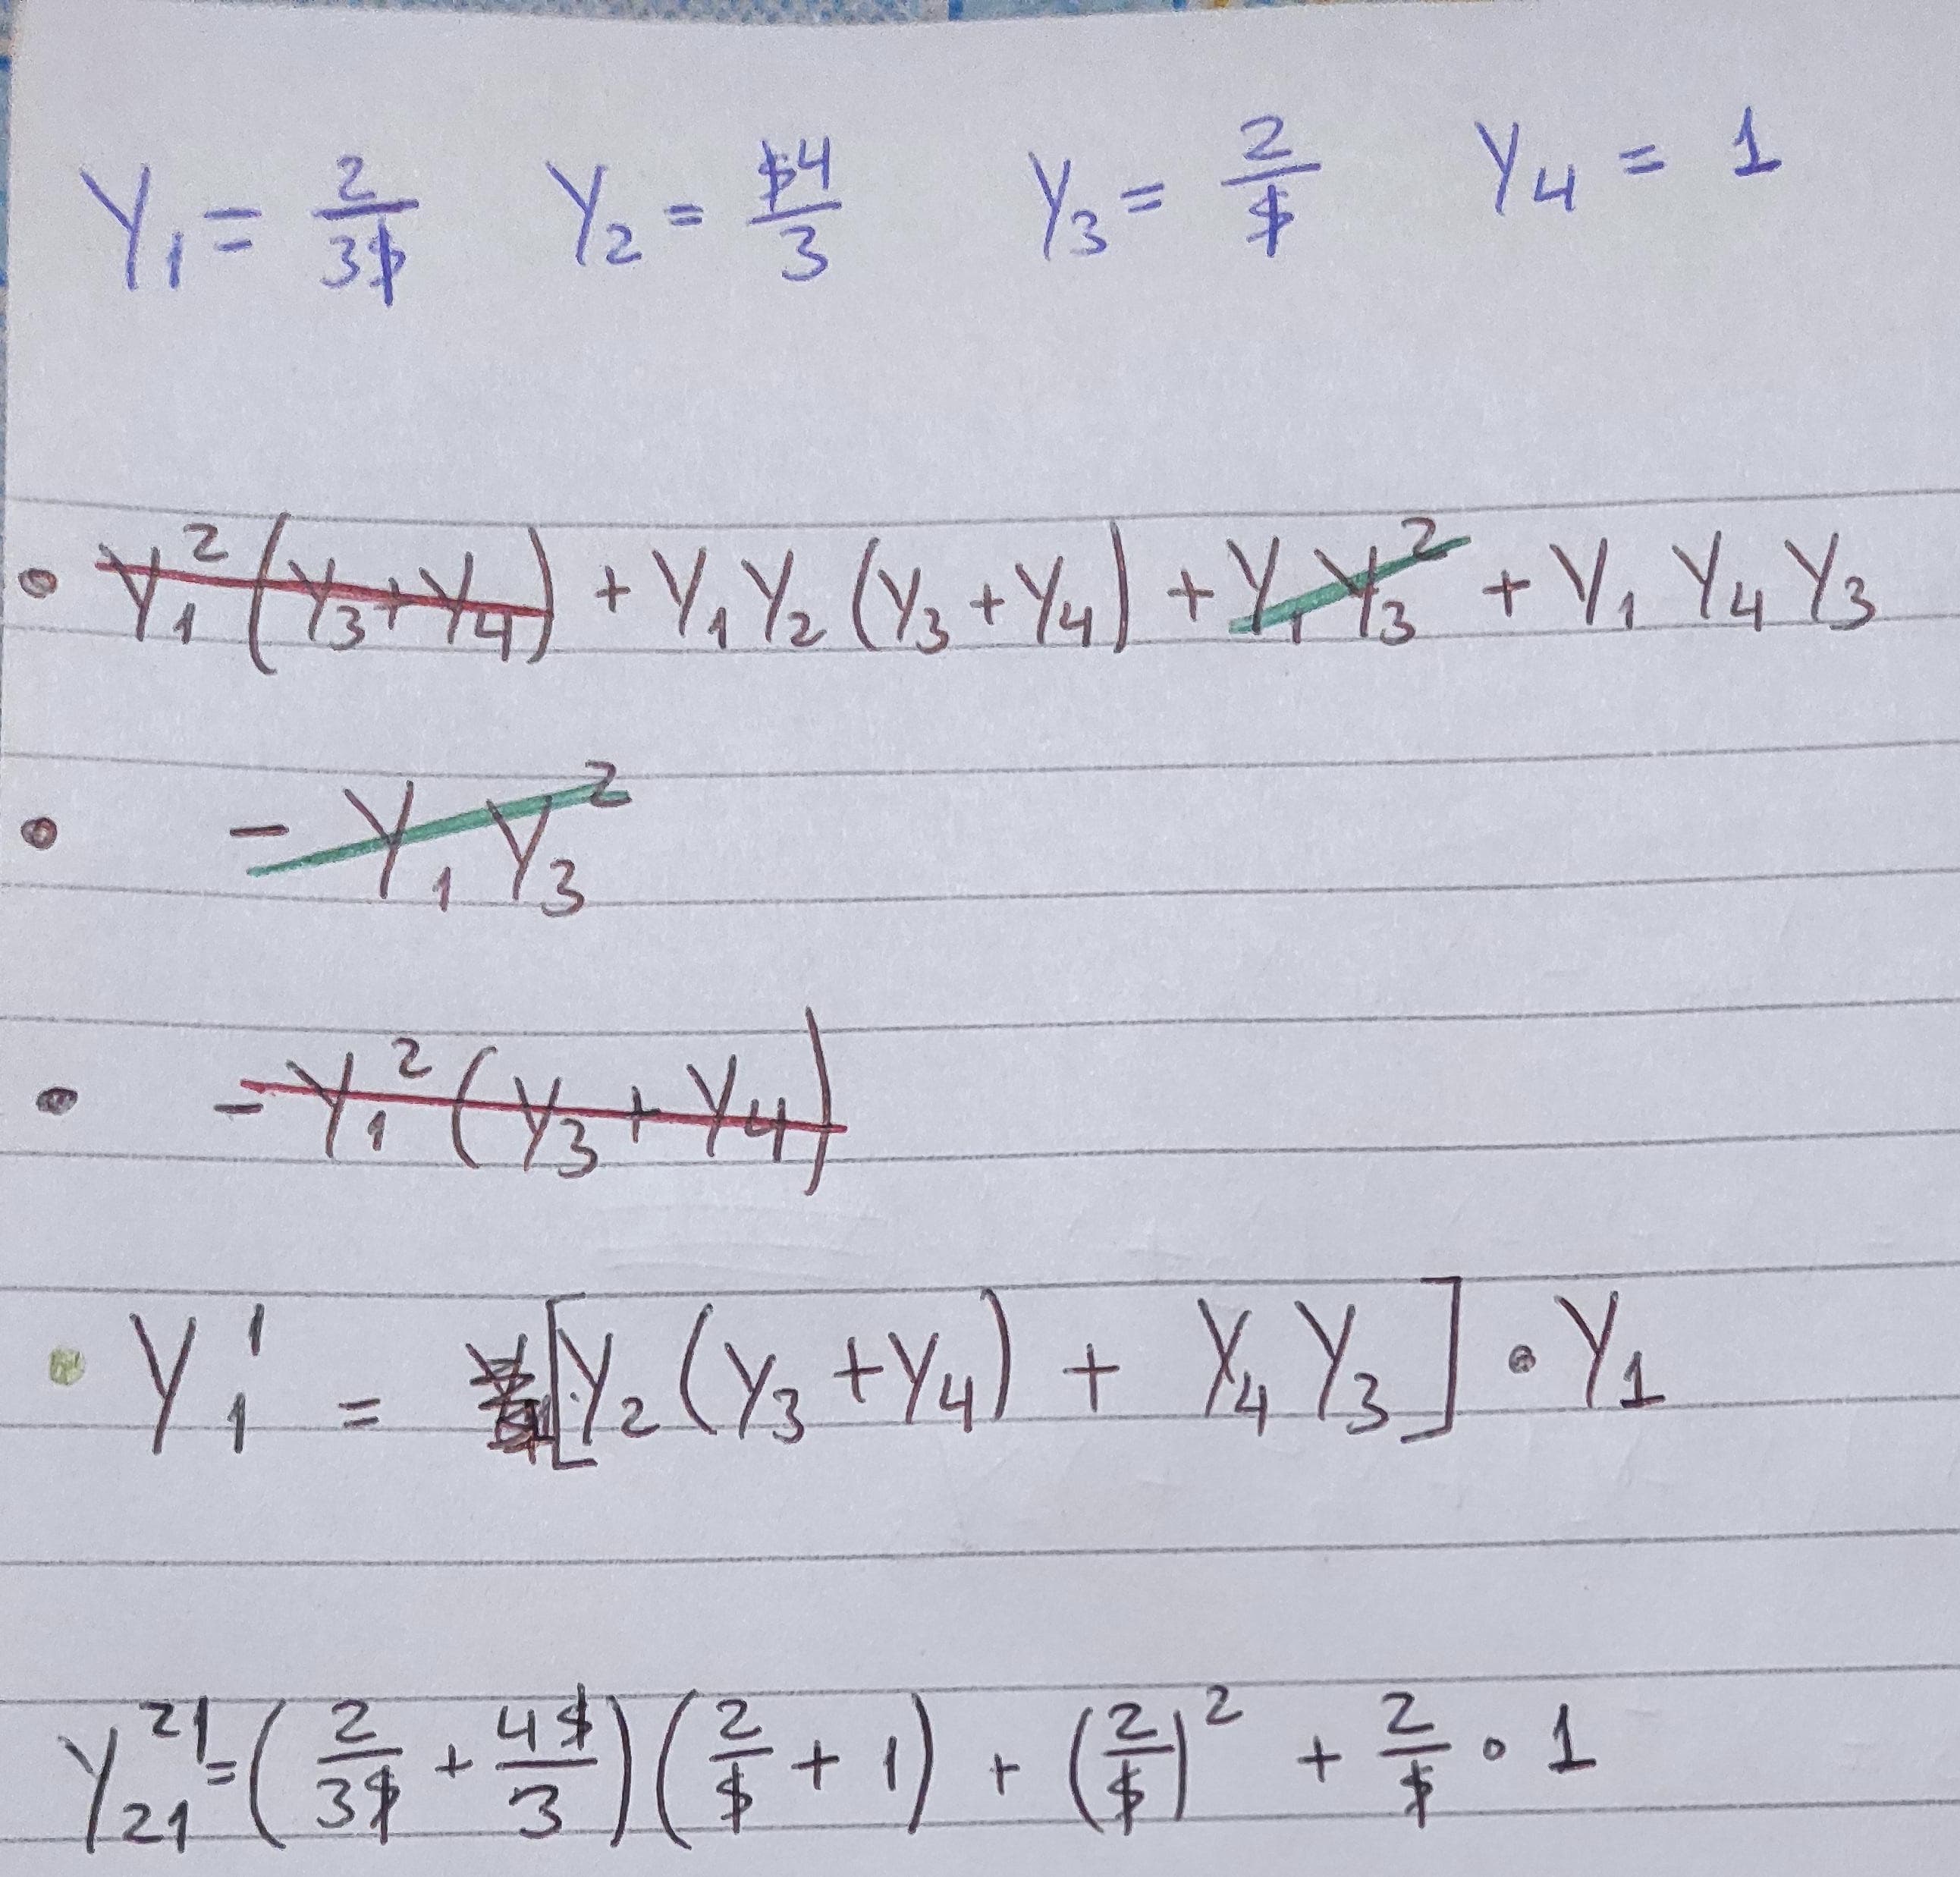 Y₁ = 2/3$ Y₂ = $4/3 Y₃ = 2/$ Y₄ = 1
• Y₁²(Y₃+Y₄) + Y₁Y₂(Y₃+Y₄) + Y₁Y₃² + Y₁Y₄Y₃
• -Y₁Y₃²
• -Y₁²(Y₃+Y₄)
• Y₁¹ = [Y₂(Y₃+Y₄) + Y₄Y₃]•Y₁
Y₂₁²¹ = (2/3$ + 4$/3)(2/$ + 1) + (2/$)² + 2/$ • 1